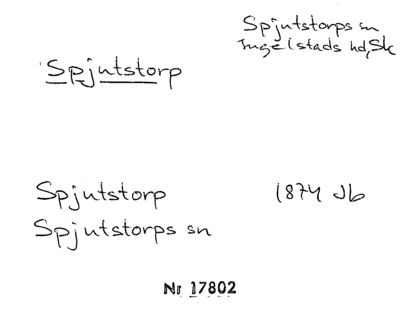 Spjutstorps sn
Ingelstads hd, Sk
Spjutstorp
Spjutstorp 1874 Jb
Spjutstorps sn
Nr 17802